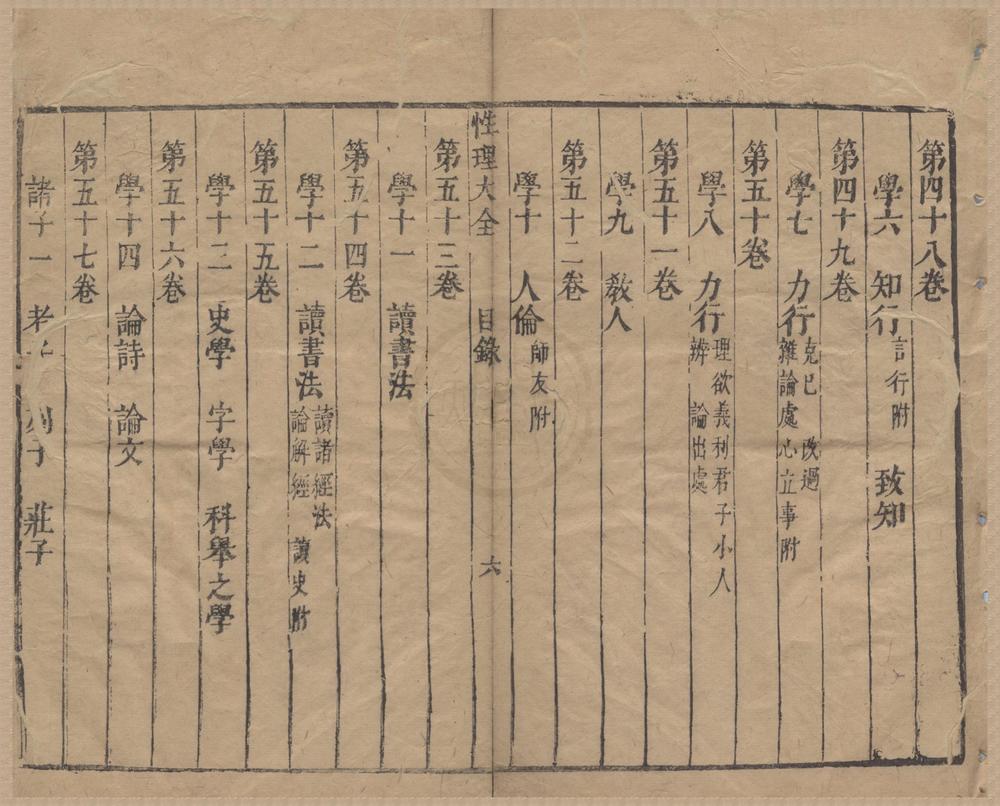 第四十八卷
學六 知行 言行附 致知
第四十九卷
學七 力行 克己 改過 雜論處心立事附
第五十卷
學八 力行 理欲義利君子小人辨 論出處
第五十一卷
學九 敎人
第五十二卷
學十 人倫 師友附
性理大全 目錄 六
第五十三卷
學十一 讀書法
第五十四卷
學十二 讀書法 讀諸經法 論解經 讀史附
第五十五卷
學十三 史學 字學 科舉之學
第五十六卷
學十四 論詩 論文
第五十七卷
諸子一 老子 列子 莊子